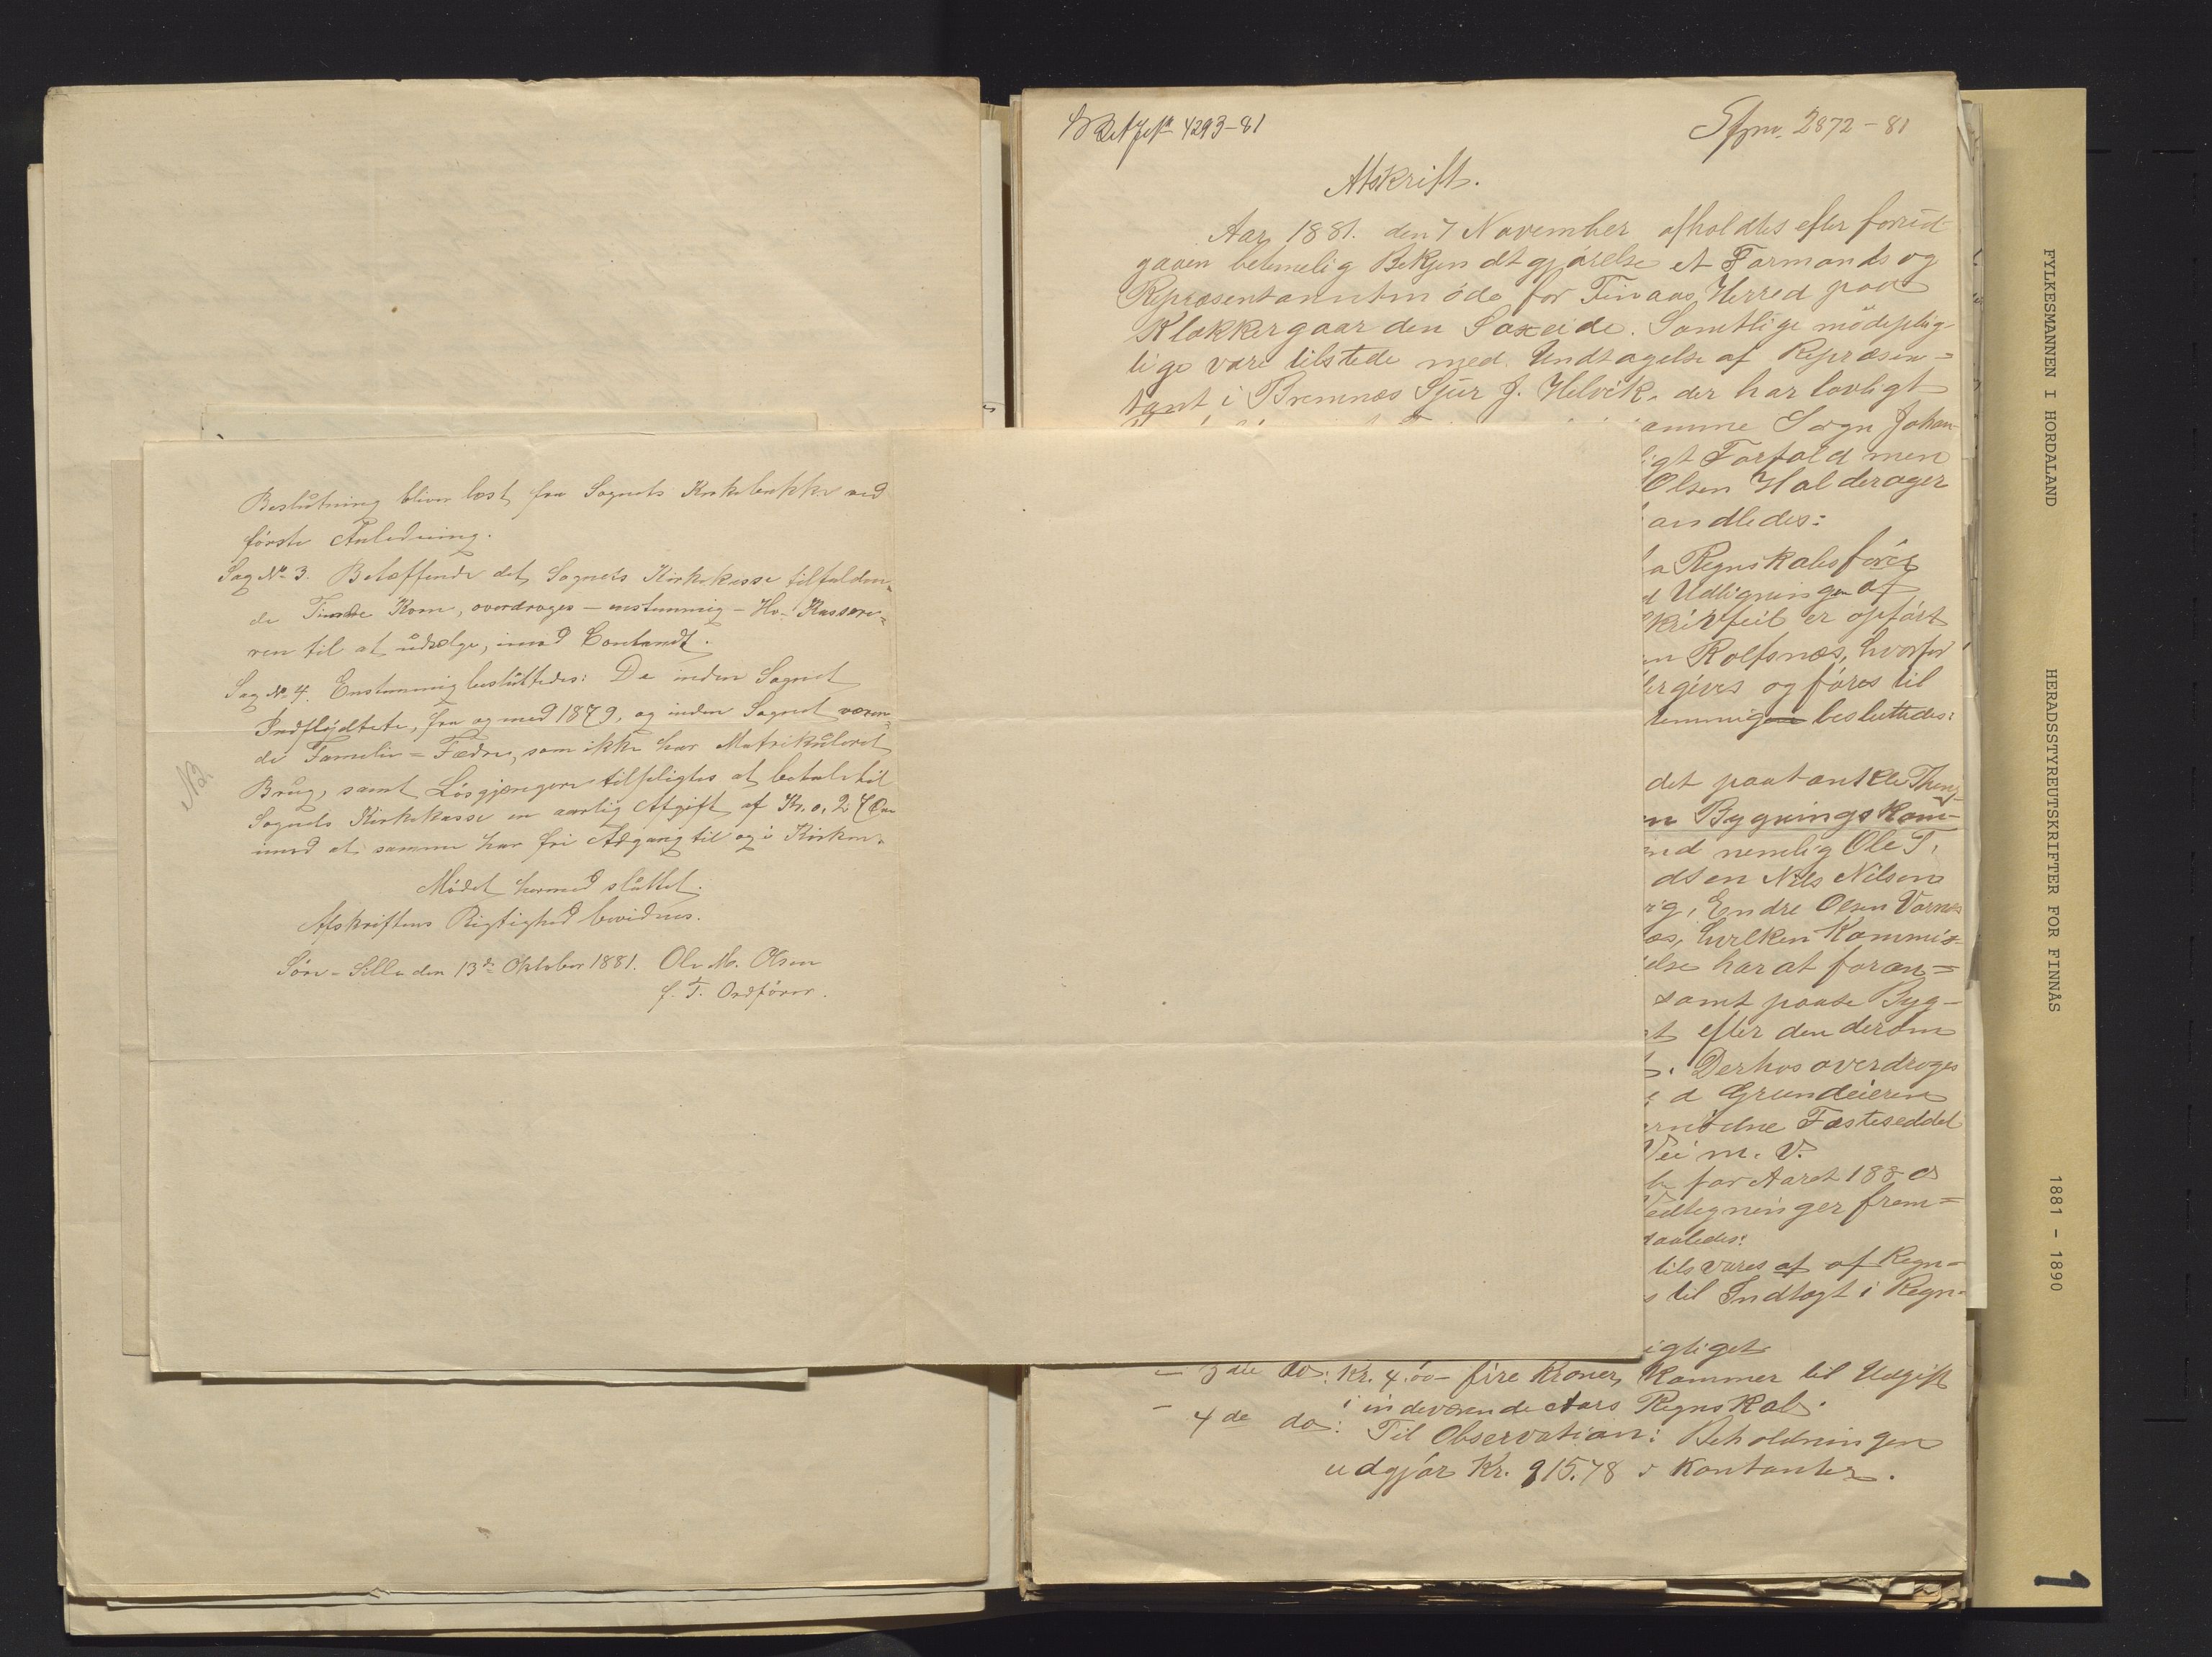 Beslutning bliver læst fra Sognets Kirkebakke ved
förste Anledning.
Sag No 3. Betæffende det Sognets Kirkekasse tilfalden-
de Tiende Korn, overdroges - enstemmig - Hr. Kassere-
ren til at udsælge, imod Contandt.
Sag No 4. Enstemmig besluttedes: De inden Sognet
Indflydtete, fra og med 1879, og inden Sognet væren-
de Familie=Fædre, som ikke har Matrikuleret
Brug, samt Lösgjængere tilpligtes at betale til
Sognets Kirkekasse en aarlig Afgift af Kr. 0, 27 Øre
imod at samme har fri Adgang til og i Kirken.
Mödet hermed sluttet.
Afskriftens Rigtighed bevidnes.
den 13de Oktober 1881. Ole M. Olsen
f. T. Ordförer.
4293-81
2872-81
Afskrift.
Aar 1881. den 7 November afholdtes efter forud
gaaen betimelig Bekjendtgjörelse et Formands og
Repræsentantmöde for Finaas Herred paa
Klokkergaarden Saxeide. Samtlige mödeplig-
lige vare tilstede med Undtagelse af Repræsen=
tant i Bremnæs Sjur J. Helvik, der har lovligt
amme Sogn Johan
igt Forfald men
Olsen Halderager
andledes:
a Regnskabsförer
d Udligningen af
krivfeil er opfört
en Rolfsnæs, hvorfor
ergives og föres til
temmig besluttedes:
det paatænkte Thing-
n Bygningskom-
nd nemlig Ole T.
dsen Nils Nilsen
rig, Endre Olsen Vornes
æs, hvilken Kommis-
else har at foran=
samt paase Byg-
t efter den derom
. Derhos overdroges
d Grundeieren
ernödne Fæsteseddel
Vei m. V.
for Aaret 1880
edtegninger frem=
saaledes:
tilsvares af af Regn=
s til Indtægt i Regn-
igtiget
- 3die do: Kr. 4.00 - fire Kroner, kommer til Udgift
i indeværende Aars Regnskab.
- 4de do: Til Observation: Beholdningen
udgjör Kr. 915.78 i Kontanter.
FYLKESMANNEN I HORDALAND
HERADSSTYREUTSKRIFTER FOR FINNÅS
1881 - 1890
1